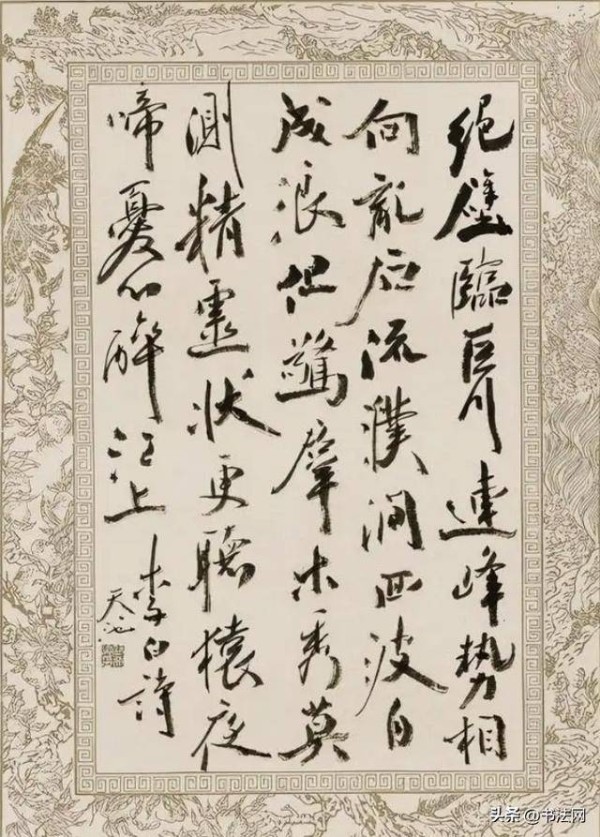 絕壁臨巨川連峰勢相
向亂石流濮間迴波自
成浪但驚羣木秀莫
測精靈狀更聽猿夜
啼憂心醉江上 李白詩
天池
头条 @书法网